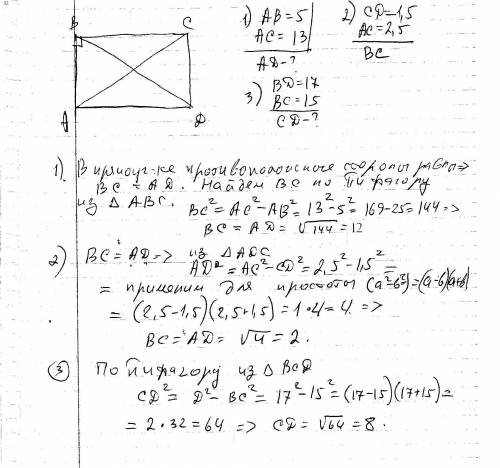 B C
A D
1) AB = 5
AC = 13
AD - ?
2) CD = 1,5
AC = 2,5
BC
3) BD = 17
BC = 15
CD - ?
1) В прямоуг-ке противоположные стороны равны =>
BC = AD. Найдем BC по Пифагору
из △ ABC. BC² = AC² - AB² = 13² - 5² = 169 - 25 = 144 =>
BC = AD = √144 = 12
2) BC = AD => из △ ADC
AD² = AC² - CD² = 2,5² - 1,5² =
= применим для простоты (a² - b²) = (a-b)(a+b)
= (2,5 - 1,5)(2,5 + 1,5) = 1 • 4 = 4 =>
BC = AD = √4 = 2.
3) По Пифагору из △ BCD
CD² = D² - BC² = 17² - 15² = (17-15)(17+15) =
= 2 • 32 = 64 => CD = √64 = 8.